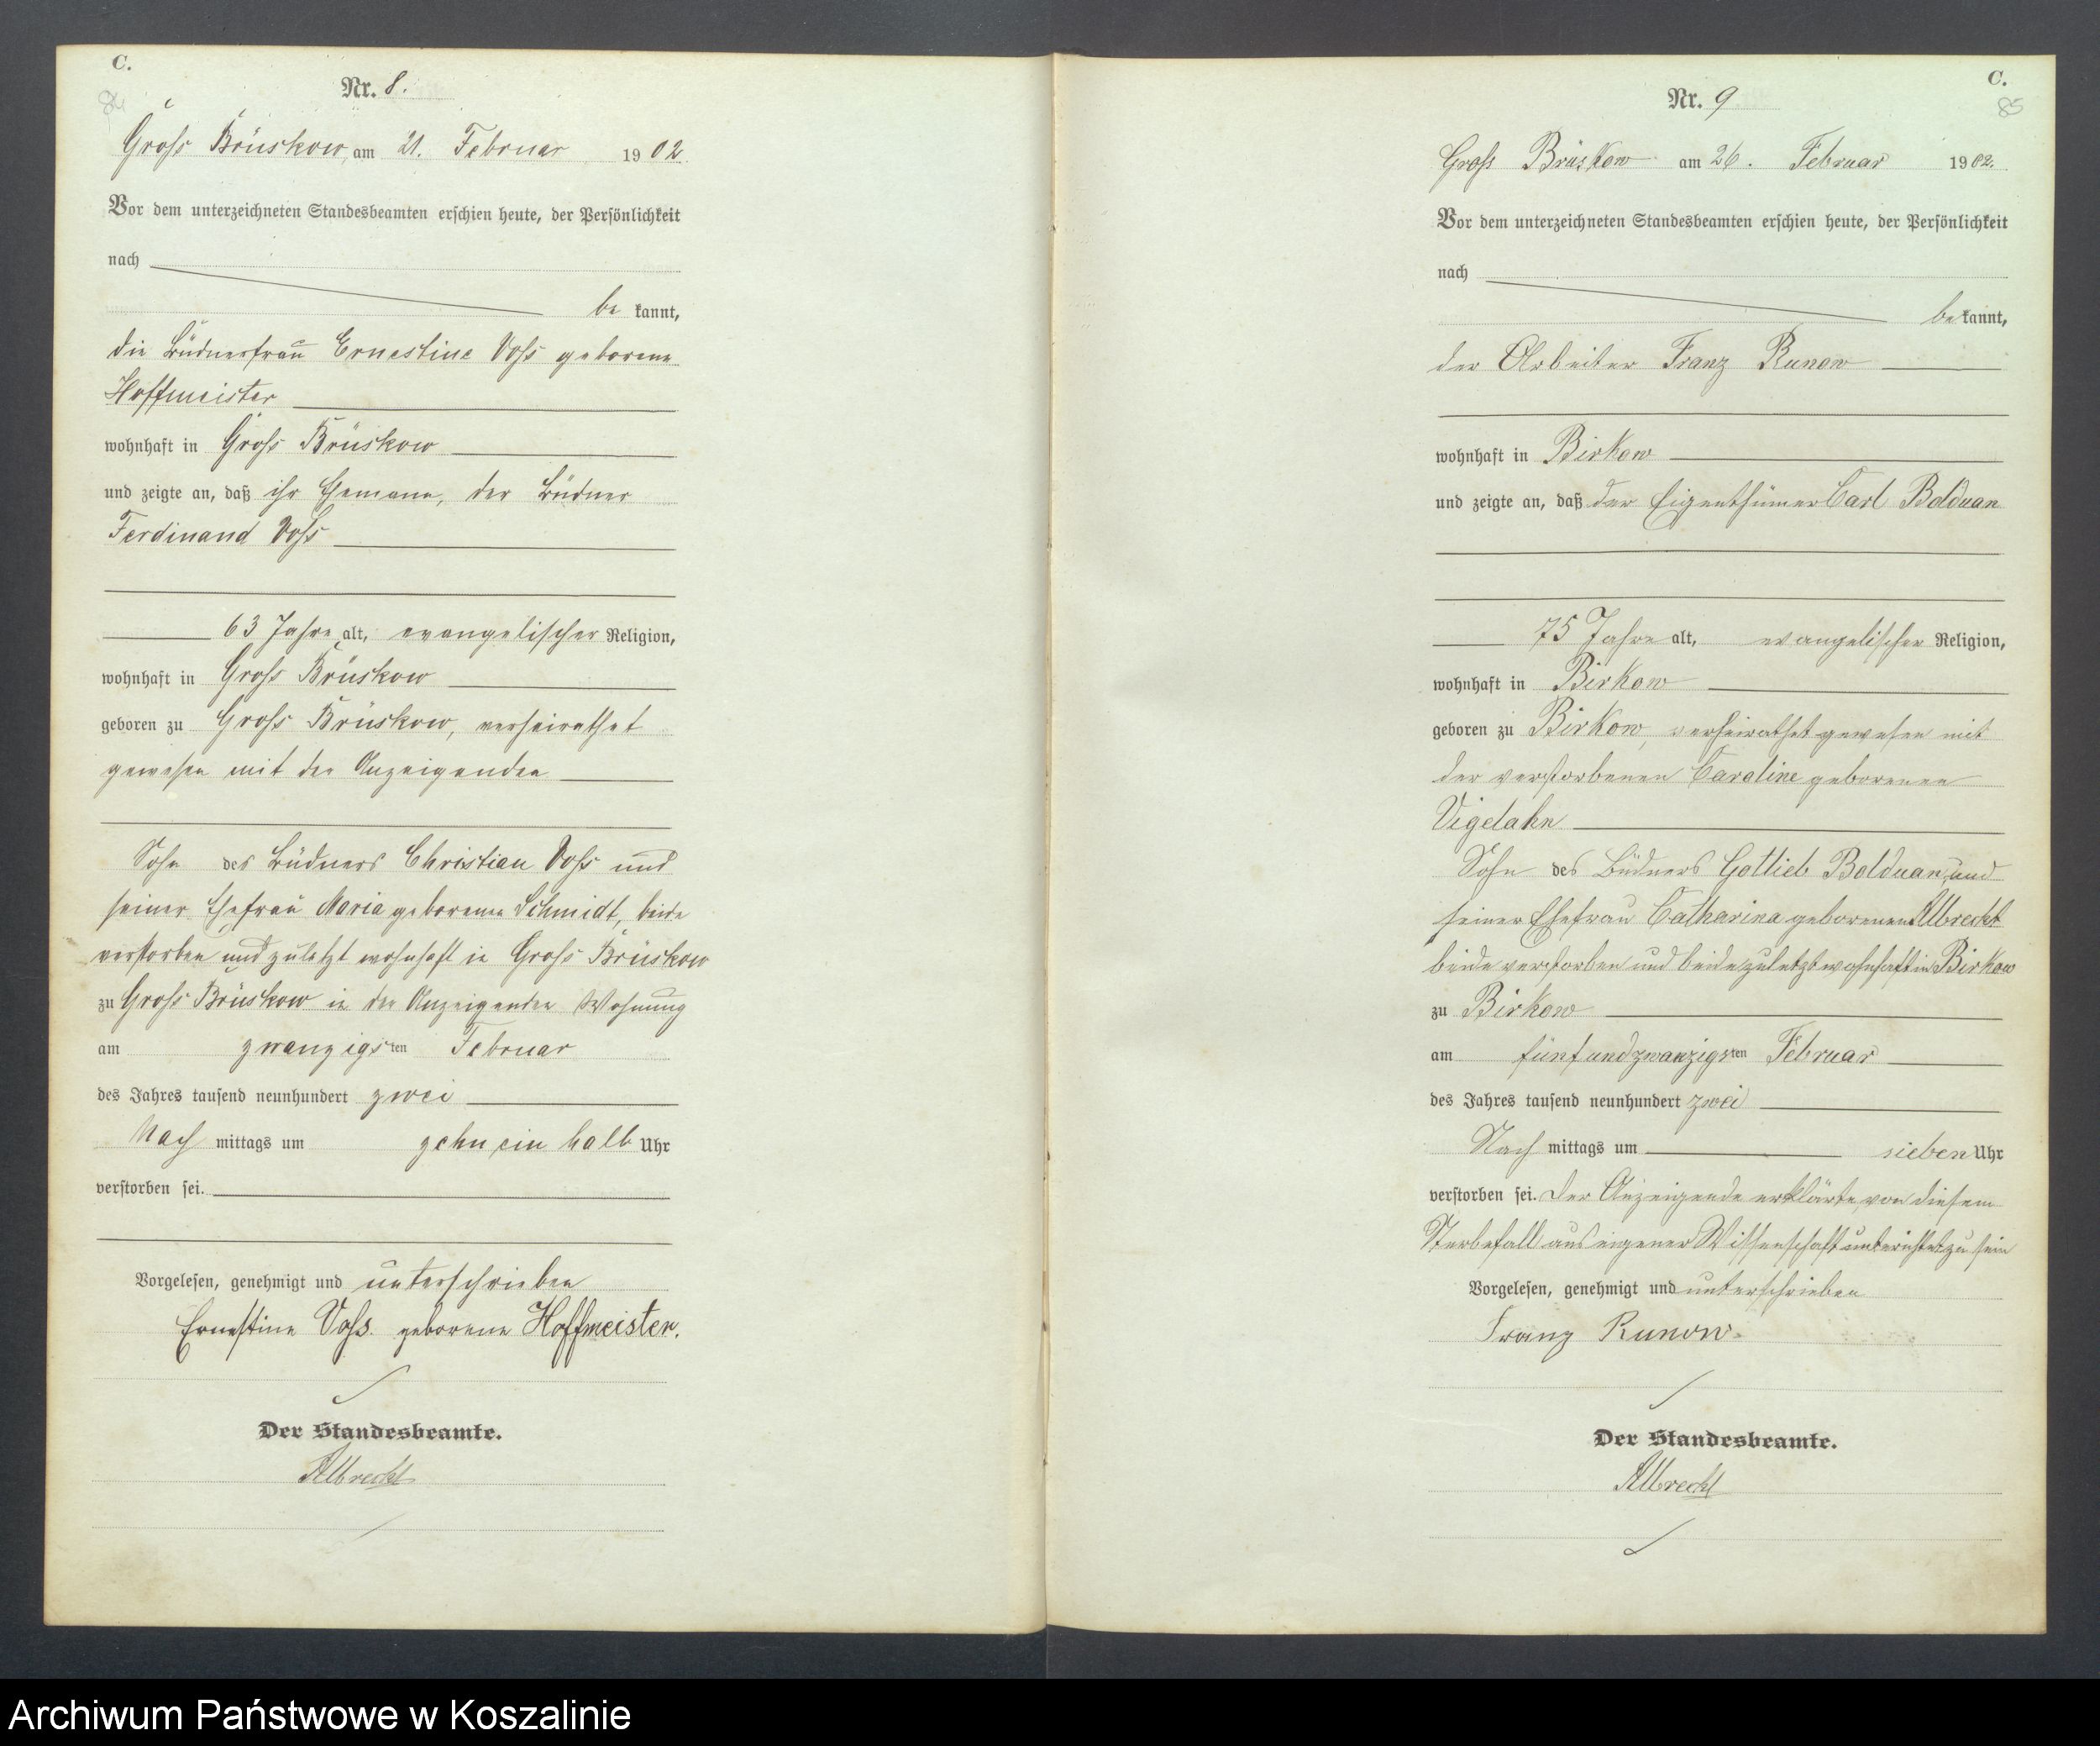 C.
Nr. 8.
84
Groß Brüskow, am 21. Februar 1902.
Vor dem unterzeichneten Standesbeamten erschien heute, der Persönlichkeit
nach
be kannt,
die Büdnerfrau Ernestine Voß geborene
Hoffmeister
wohnhaft in Groß Brüskow
und zeigte an, daß ihr Ehemann, der Büdner
Ferdinand Voß
63 Jahre alt, evangelischer Religion,
wohnhaft in Groß Brüskow
geboren zu Groß Brüskow, verheirathet
gewesen mit der Anzeigenden
Sohn des Büdners Christian Voß und
seiner Ehefrau Maria geborenen Schmidt, beide
verstorben und zuletzt wohnhaft in Groß Brüskow
zu Groß Brüskow in der Anzeigenden Wohnung
am zwanzigsten Februar
des Jahres tausend neunhundert zwei
Nach mittags um zehn ein halb Uhr
verstorben sei.
Vorgelesen, genehmigt und unterschrieben
Ernestine Voß. geborene Hoffmeister.
Der Standesbeamte.
Albrecht
C.
Nr. 9
85
Groß Brüskow am 26. Februar 1902.
Vor dem unterzeichneten Standesbeamten erschien heute, der Persönlichkeit
nach
be kannt,
der Arbeiter Franz Runow
wohnhaft in Birkow
und zeigte an, daß der Eigenthümer Carl Bolduan
75 Jahre alt, evangelischer Religion,
wohnhaft in Birkow
geboren zu Birkow, verheirathet gewesen mit
der verstorbenen Caroline geborenen
Vigelahn
Sohn des Büdners Gottlieb Bolduan und
seiner Ehefrau Catharina geborenen Albrecht
beide verstorben und beide zuletzt wohnhaft in Birkow
zu Birkow
am fünfundzwanzigsten Februar
des Jahres tausend neunhundert zwei
Nach mittags um sieben Uhr
verstorben sei. Der Anzeigende erklärte, von diesem
Sterbefall aus eigener Wissenschaft unterichtet zu sein
Vorgelesen, genehmigt und unterschrieben
Franz Runow.
Der Standesbeamte.
Albrecht
Archiwum Państwowe w Koszalinie